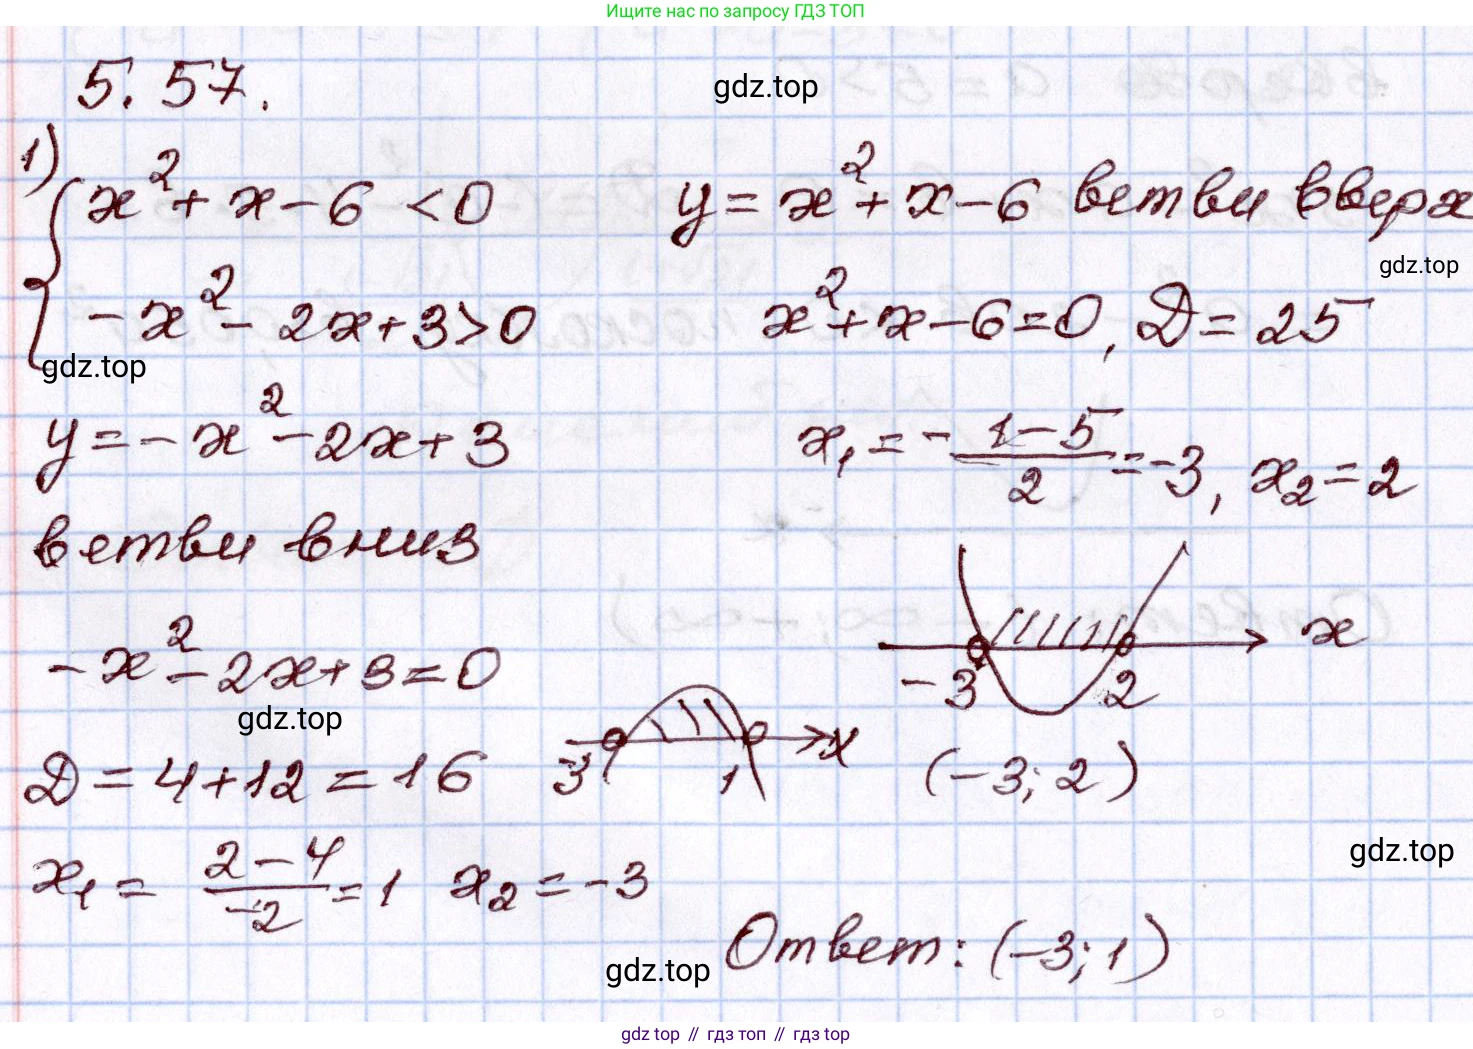 Ищите нас по запросу ГДЗ ТОП
5.57.
gdz.top
1)
x² + x - 6 < 0
y = x² + x - 6 ветви вверх
gdz.top
-x² - 2x + 3 > 0
x² + x - 6 = 0, D = 25
gdz.top
y = -x² - 2x + 3
x₁ = -1-5/2 = -3, x₂ = 2
ветви вниз
x
-3 2
-x² - 2x + 3 = 0
gdz.top
x
-3 1
(-3; 2)
D = 4 + 12 = 16
gdz.top
x₁ = 2-4/-2 = 1 x₂ = -3
Ответ: (-3; 1)
gdz.top
gdz top // гдз топ // гдз top